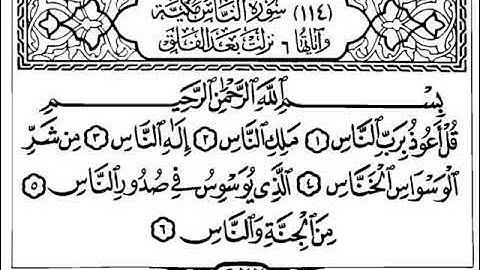 (١١٤) سُورَةُ النَّاسِ مَكِّيَّة
وَآيَاتُهَا ٦ نَزَلَتْ بَعْدَ الْفَلَقِ
بِسْمِ اللَّهِ الرَّحْمَٰنِ الرَّحِيمِ
قُلْ أَعُوذُ بِرَبِّ النَّاسِ ١ مَلِكِ النَّاسِ ٢ إِلَٰهِ النَّاسِ ٣ مِن شَرِّ
الْوَسْوَاسِ الْخَنَّاسِ ٤ الَّذِي يُوَسْوِسُ فِي صُدُورِ النَّاسِ ٥
مِنَ الْجِنَّةِ وَالنَّاسِ ٦